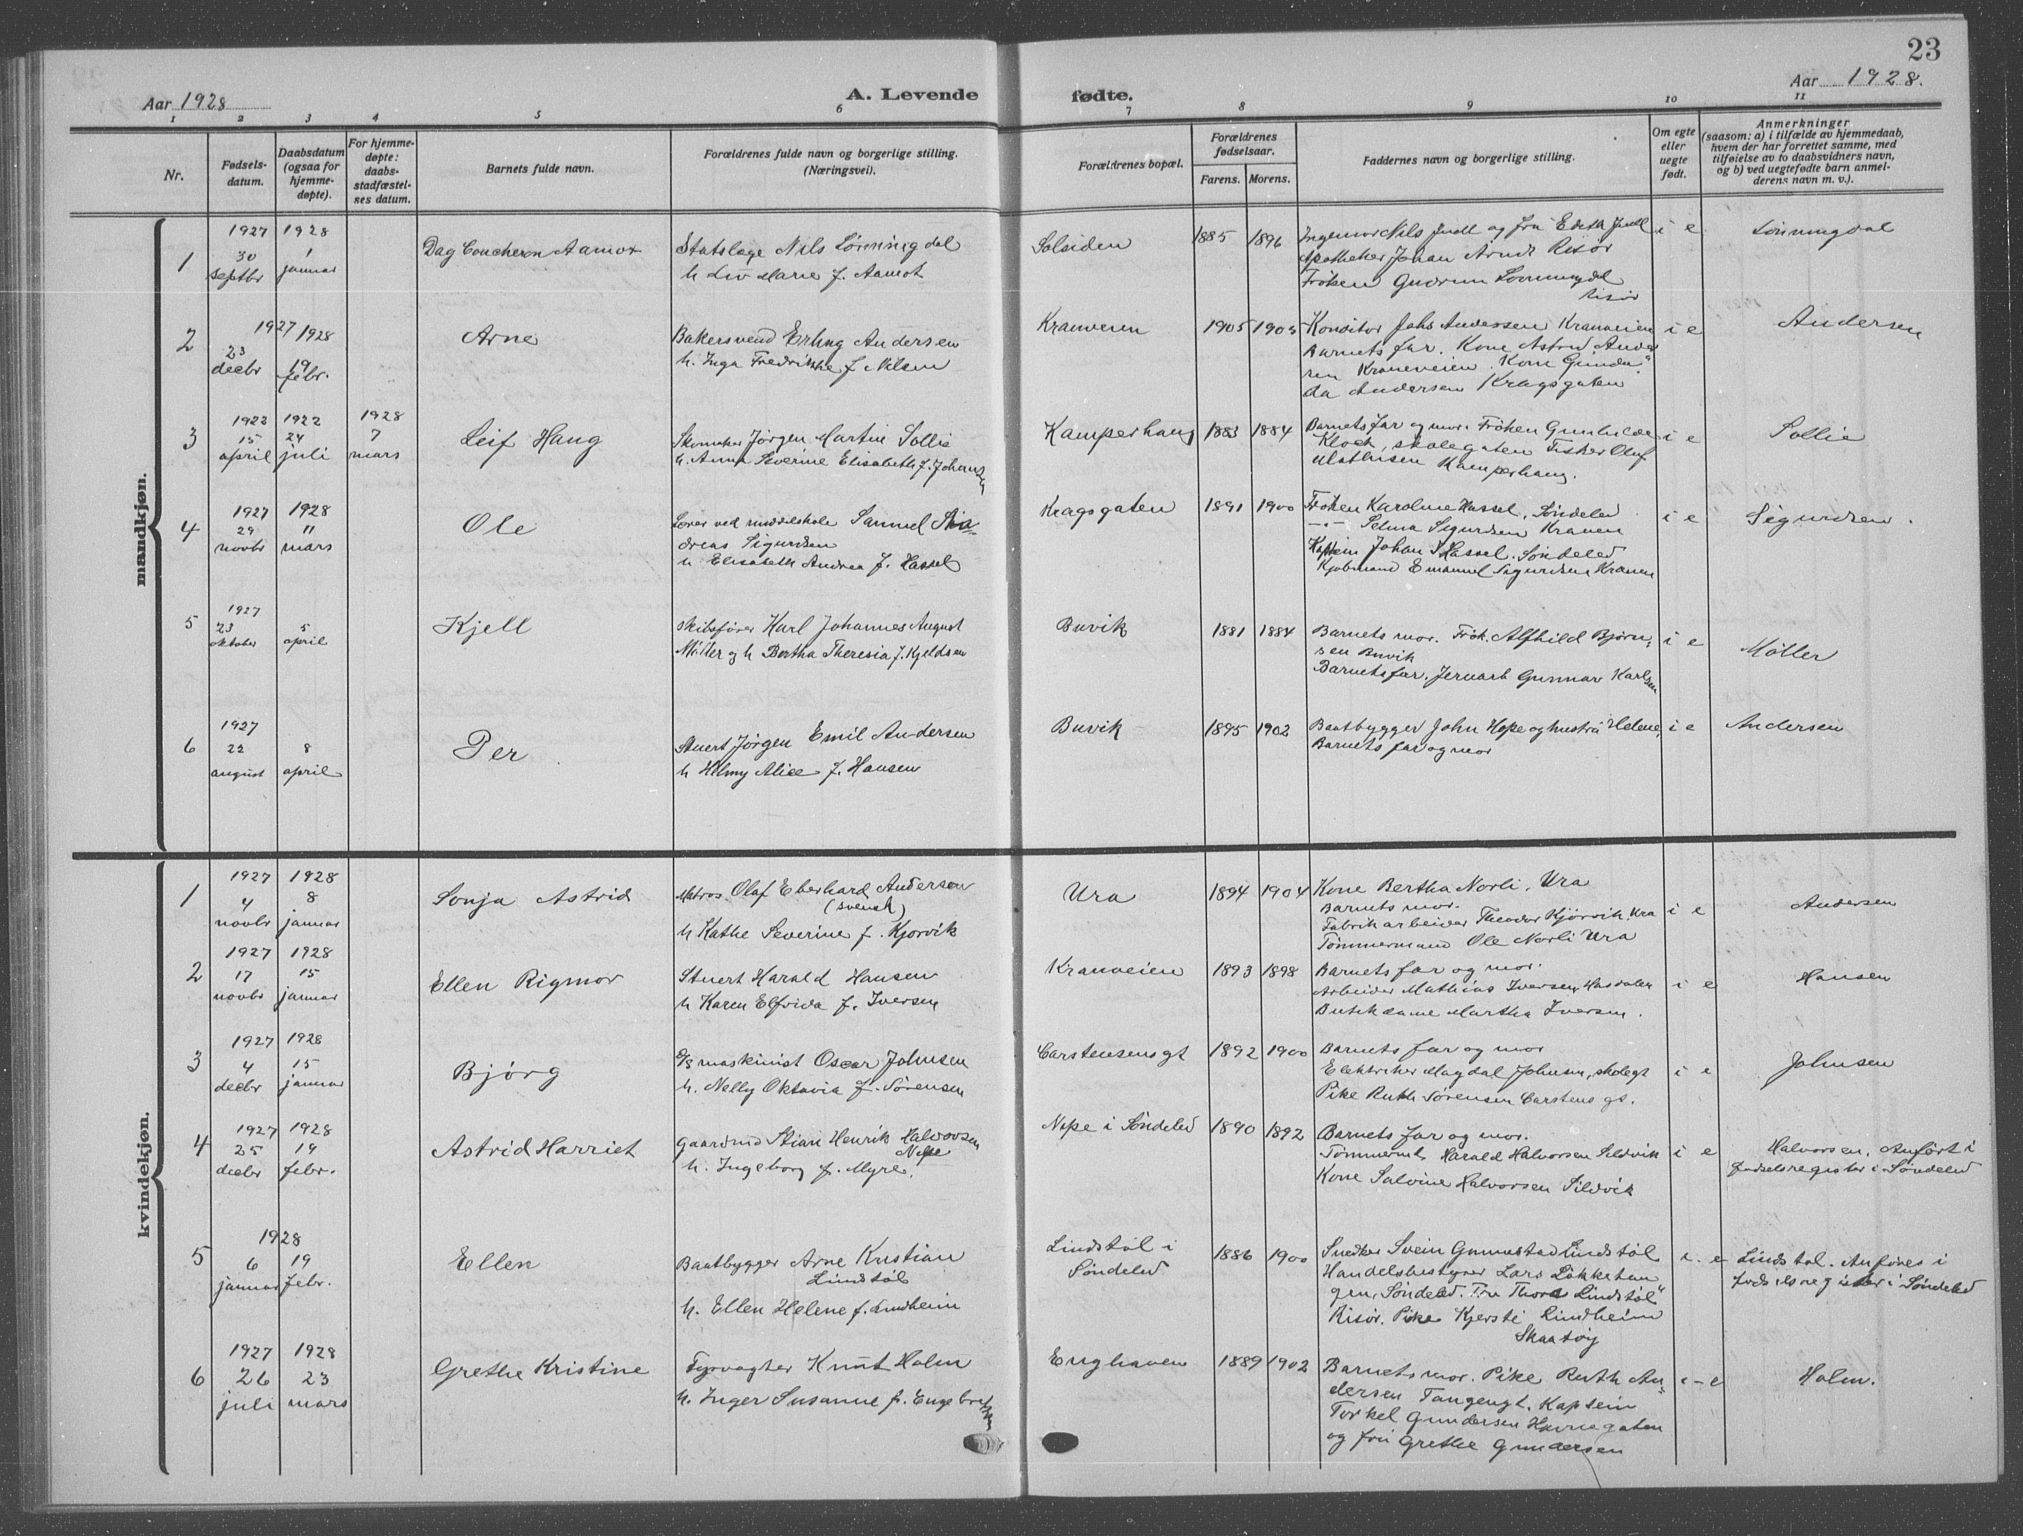 23
Aar 1928
A. Levende
fødte.
Aar 1928.
1 2 3 4 5 6 7 8 9 10 11
Nr.
Fødsels-
datum.
Daabsdatum
(ogsaa for
hjemme-
døpte).
For hjemme-
døpte:
daabs-
stadfæstel-
ses datum.
Barnets fulde navn.
Forældrenes fulde navn og borgerlige stilling.
(Næringsvei).
Forældrenes bopæl.
Forældrenes
fødselsaar.
Farens. Morens.
Faddernes navn og borgerlige stilling.
Om egte
eller
uegte
født.
Anmerkninger
(saasom: a) i tilfælde av hjemmedaab,
hvem der har forrettet samme, med
tilføielse av to daabsvidners navn,
og b) ved uegtefødte barn anmel-
derens navn m. v.).
mandkjøn.
1
1927
30
septbr
1928
1
januar
Dag Coucheron Aamot
Statslæge Nils Lönningdal
h Liv Marie f. Aamot
Solsiden
1885 1896
Ingeniör Nils Juell og fru Edith Juell
Apotheker Johan Arndt Risör
Fröken Gudrun Lönningdal
Risör
i e
Lönningdal
2
1927
23
decbr
1928
19
febr.
Arne
Bakersvend Erling Andersen
h. Inga Fredrikke f Nilsen
Kranveien
1905 1905
Konditor Johs Andersen Kranveien
Barnets far. Kone Astrid Ander
sen Kraneveien. Kone Gunda
Andersen Kragsgaten
i e
Andersen
3
1922
15
april
1922
24
juli
1928
7
mars
Leif Haug
Skomaker Jørgen Martin Sollie
h. Anna Severine Elisabeth f. Johansen
Kamperhaug
1883 1884
Barnets far og mor. Fröken Gunhilde
Kloch, skolegaten Fisker Oluf
Mathisen Kamperhaug.
i e
Sollie
4
1927
29
novbr
1928
11
mars
Ole
Lærer ved middelskole Samuel An-
dreas Sigurdsen
h Elisabeth Andrea f. Hassel
Kragsgaten
1891 1900
Fröken Karoline Hassel, Söndeled
-"- Selma Sigurdsen Kranen
Kaptein Johan Hassel. Söndeled
Kjøbmand Emanuel Sigurdsen Kranen
i e
Sigurdsen.
5
1927
23
oktober
5
april
Kjell
Skibsfører Karl Johannes August
Möller og h Bertha Theresia f. Kjeldsen
Buvik
1881 1884
Barnets mor. Frök. Alfhild Bjørn-
sen Buvik
Barnets far. Jernarb Gunnar Karlsen
i e
Møller
6
1927
22
august
8
april
Per
Stuert Jørgen Emil Andersen
h Helmy Alice f. Hansen
Buvik
1895 1902
Baatbygger John Hope og hustru Helene,
Barnets far og mor
i e
Andersen
kvindekjøn.
1
1927
4
novbr
1928
8
januar
Sonja Astrid
Matros Olaf Eberhard Andersen
(svensk)
h Kathe Severine f. Kjorvik
Ura
1894 1904
Kone Bertha Norli, Ura
Barnets mor.
Fabrikarbeider Theodor Kjörvik, Ura
Tömmermand Ole Norli Ura
i e
Andersen
2
1927
17
novbr
1928
15
januar
Ellen Rigmor
Stuert Harald Hansen
h Karen Elfrida f. Iversen
Kranveien
1893 1898
Barnets far og mor.
Arbeider Mathias Iversen Hasdalen
Butikdame Martha Iversen.
i e
Hansen
3
1927
4
decbr
1928
15
januar
Bjørg
D/S maskinist Oscar Johnsen
h. Nelly Oktavia f. Sörensen
Carstensensgt
1892 1900
Barnets far og mor
Elektriker Magdal Johnsen, skolegt
Pike Ruth Sörensen Carstens gt.
i e
Johnsen
4
1927
25
decbr
1928
19
febr.
Astrid Harriet
Gaardmd Stian Henrik Halvorsen
Nipe
h. Ingeborg f. Myre.
Nipe i Söndeled
1890 1892
Barnets far og mor.
Tömmermd Harald Halvorsen Sildvik
Kone Salvine Halvorsen Sildvik
i e
Halvorsen. Anfört i
fødselsregister i Söndeled
5
1928
6
januar
19
febr.
Ellen
Baatbygger Arne Kristian
Lindstøl
h. Ellen Helene f. Lindheim
Lindstøl i
Söndeled
1886 1900
Snedker Svein Gunnestad Lindstöl
Handelsbestyrer Lars Lökketan
gen, Söndeled. Fru Thora Lindstöl
Risör. Pike Kjersti Lindheim
Skaatöy
i - e
Lindstøl. Anføres i
fødselsregister i Söndeled
6
1927
26
juli
1928
23
mars
Grethe Kristine
Fyrvogter Knut Holm
h. Inger Susanne f. Engebretsen
Enghaven
1889 1902
Barnets mor. Pike Ruth An-
dersen Tangengt, Kaptein
Torkel Gundersen Havnegaten
og fru Grethe Gundersen
i - e
Holm.